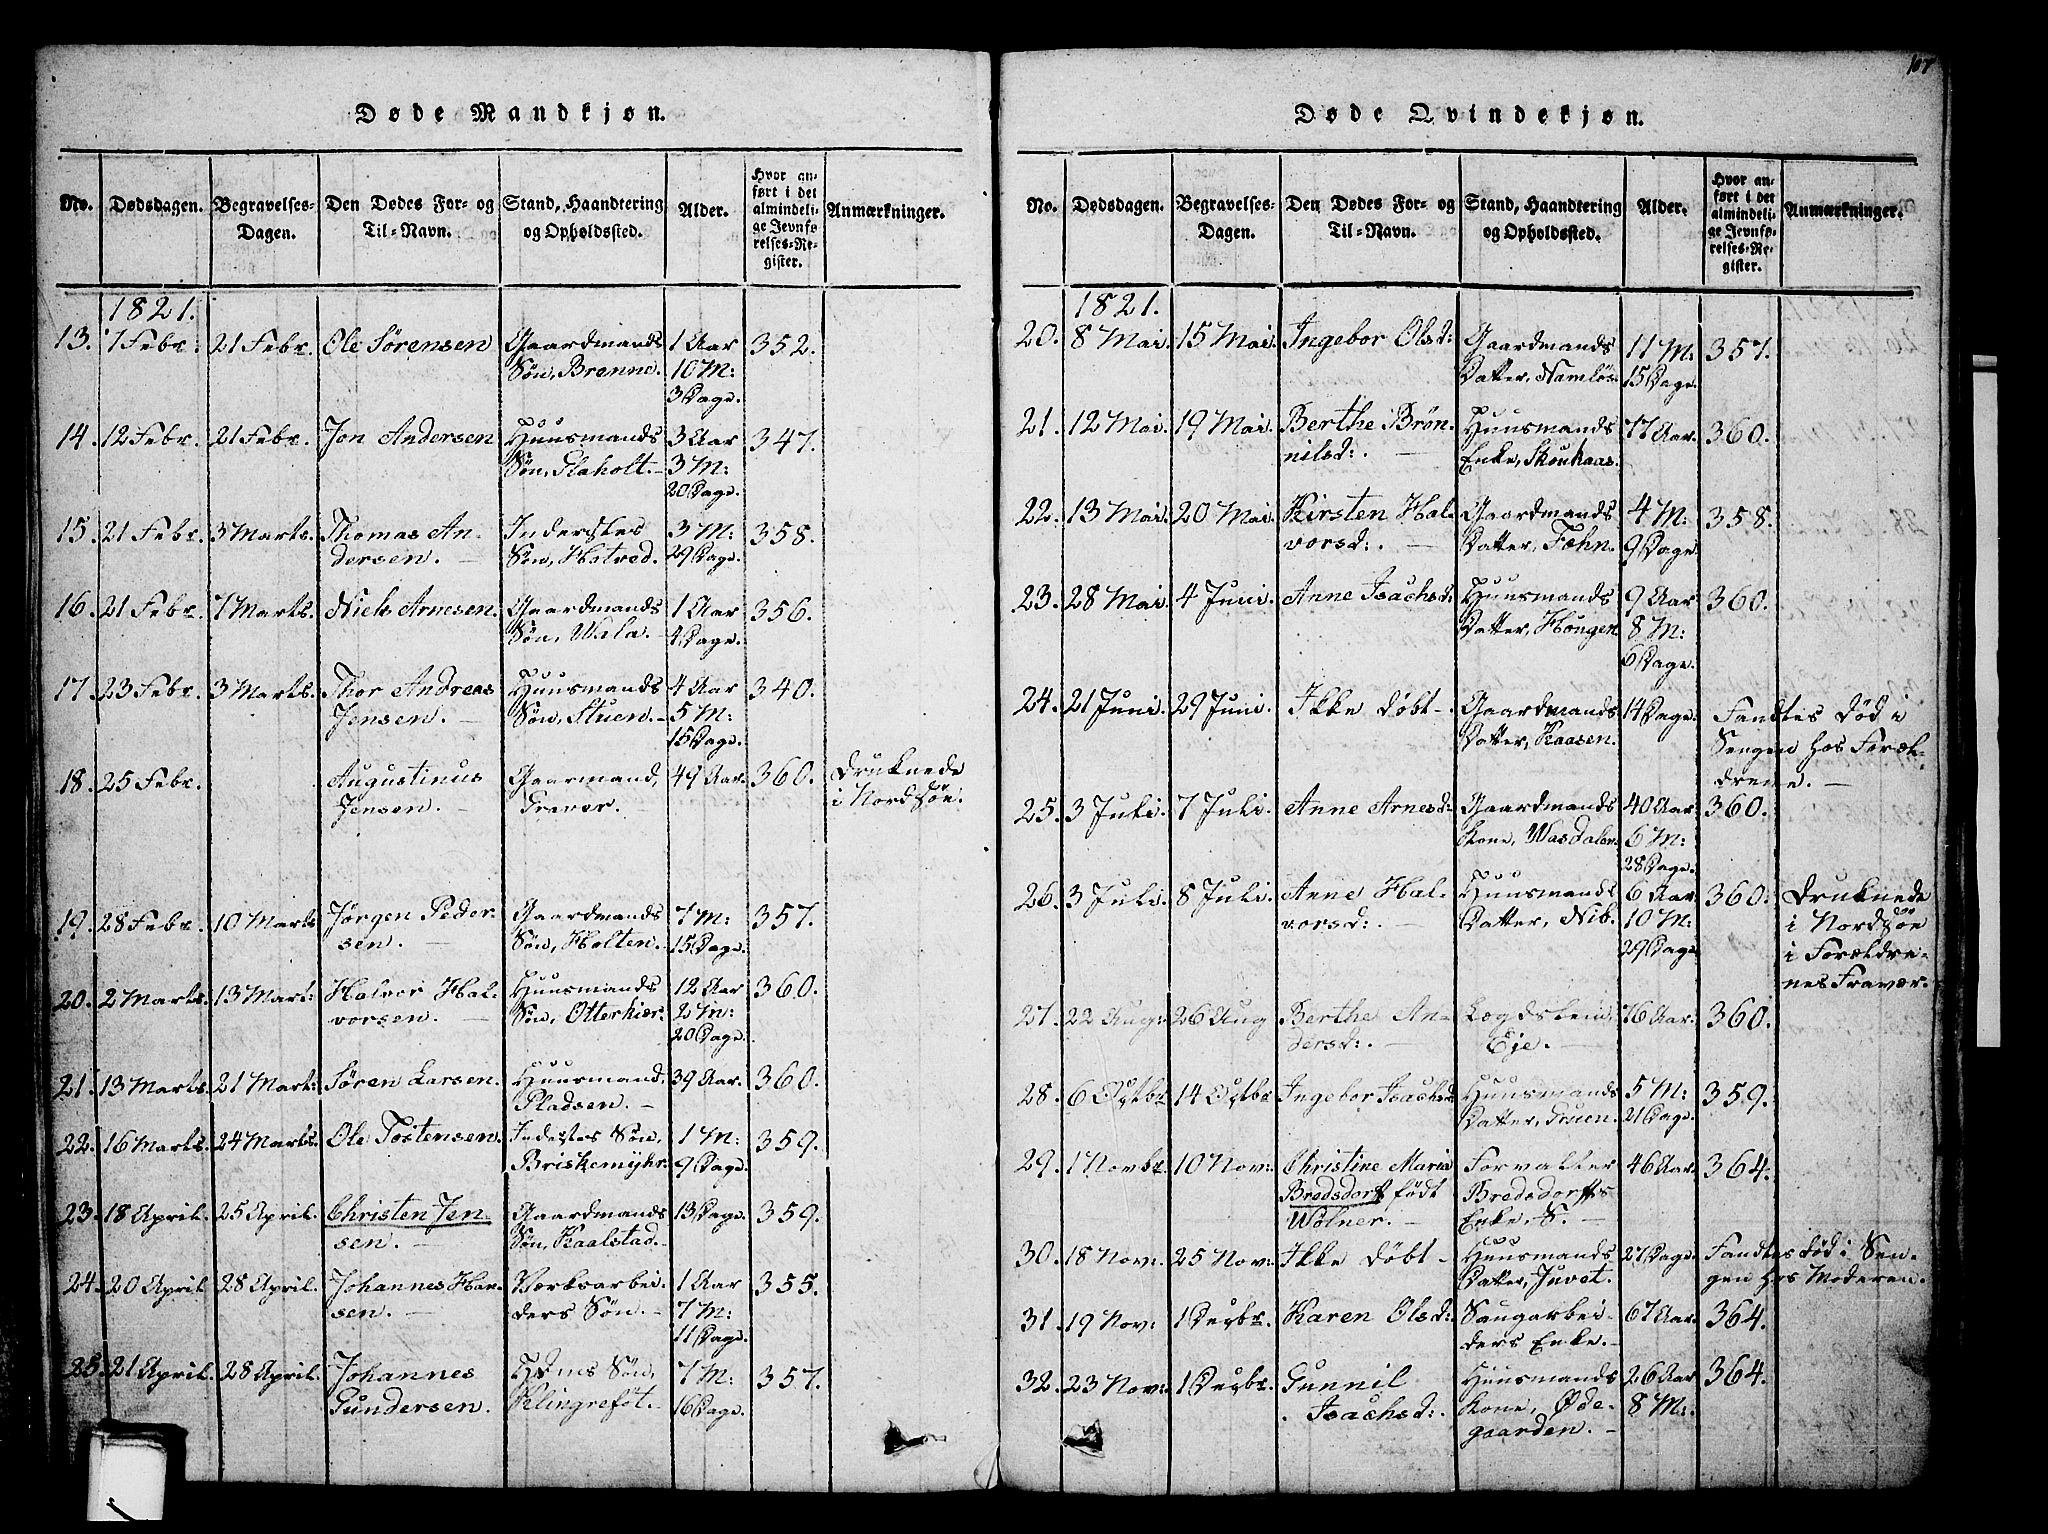 107
Døde Mandkjøn.
No. Dødsdagen. Begravelses-Dagen. Den Dødes For- og Til-Navn. Stand, Haandtering og Opholdssted. Alder. Hvor anført i det almindelige Jevnførelses-Register. Anmærkninger.
1821.
13. 7 Febr. 21 Febr. Ole Sørensen Gaardmands 1 Aar 352.
Søn, Brenne. 10 M:
3 Dage.
14. 12 Febr. 21 Febr. Jon Andersen Huusmands 3 Aar 347.
Søn, Flaholt. 3 M:
20 Dage.
15. 21 Febr. 3 Marts. Thomas An- Inderstes 3 M: 358.
dersen. Søn, Hstved. 29 Dage.
16. 21 Febr. 7 Marts. Niels Arnesen. Gaardmands 1 Aar 356.
Søn, Wala. 4 Dage.
17. 23 Febr. 3 Marts. Thor Andreas Huusmands 4 Aar 340.
Jensen. Søn, Stuen. 5 M:
15 Dage.
18. 25 Febr. Augustinus Gaarmand, 49 Aar. 360. Druknede
Jensen. Graver. i Nordsøe.
19. 28 Febr. 10 Marts Jørgen Peder- Gaardmands 7 M: 357.
sen. Søn, Holten. 15 Dage.
20. 2 Marts. 13 Mart: Halvor Hal- Huusmands 12 Aar 360.
vorsen. Søn, Otterkiær. 2 M:
20 Dage.
21. 13 Marts. 21 Mart: Søren Larsen. Huusmand, 39 Aar. 360.
Pladsen.
22. 16 Marts. 24 Marts. Ole Tostensen. Inderstes Søn, 1 M: 359.
Briskemyhr. 9 Dage.
23. 18 April. 25 April. Christen Jen- Gaardmands 13 Dage. 359.
sen. Søn, Kaalstad.
24. 20 April 28 April. Johannes Han- Værksarbei- 1 Aar 355.
sen. ders Søn. 7 M:
11 Dage.
25. 21 April. 28 April. Johannes Søn, 7 M: 357.
Gundersen. Klingrefot. 16 Dage.
Døde Qvindekjøn.
No. Dødsdagen. Begravelses-Dagen. Den Dødes For- og Til-Navn. Stand, Haandtering og Opholdssted. Alder. Hvor anført i det almindelige Jevnførelses-Register. Anmærkninger.
1821.
20. 8 Mai. 15 Mai. Ingebor Olsd: Gaardmands 11 M: 357.
Datter, Namløs. 15 Dage.
21. 12 Mai. 19 Mai. Berthe Brøn- Huusmands 77 Aar. 360.
nilsd: Enke, Skouhaas.
22. 13 Mai. 20 Mai. Kirsten Hal- Gaardmands 4 M: 358.
vorsd: Datter, Fæhn. 9 Dage.
23. 28 Mai. 4 Juni. Anne Isachsd: Huusmands 9 Aar 360.
Datter, Hougen. 8 M:
6 Dage.
24. 21 Juni. 29 Juni. Ikke døbt Gaardmands 14 Dage. Fandtes død i
Datter, Kaasen. Sengen hos Foræl-
drene.
25. 3 Juli. 7 Juli. Anne Arnesd: Gaardmands 40 Aar 360.
Kone, Wasdalen. 6 M:
28 Dage.
26. 3 Juli. 8 Juli. Anne Hal- Huusmands 6 Aar 360. Druknede
vorsd: Datter, Nib. 10 M: i Nordsøe
29 Dage i Forældre-
nes Fravær.
27. 22 Aug: 26 Aug Berthe An- Lægdslem, 76 Aar. 360.
dersd: Eie.
28. 6 Octbr 14 Octbr Ingebor Isachsd Huusmands 5 M: 359.
Datter, Gruen. 21 Dage.
29. 1 Novbr. 10 Nov: Christine Maria Forvalter 46 Aar. 364.
Bredsdorff født Bredsdorffs
Wølner. Enke, S.
30. 18 Nov: 25 Nov: Ikke døbt Huusmands 27 Dage. Fandtes død i Sen-
Datter, Juvet. gen hos Moderen.
31. 19 Nov: 1 Decbr. Karen Olsd: Saugarbei- 67 Aar. 364.
ders Enke.
32. 23 Nov: 1 Decbr. Gunnil Huusmands 26 Aar 364.
Isachsd: Kone, Øde- 8 M:
gaarden.